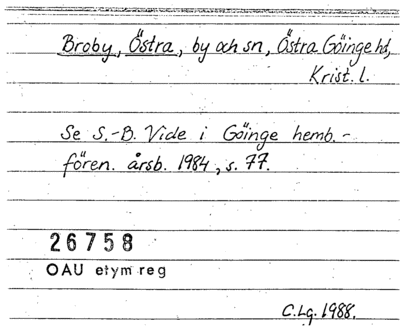 Broby, Östra, by och sn, Östra Göinge hd,
Krist. l.
Se S.-B. Vide i Göinge hemb.-
fören. årsb. 1984, s. 77.
26758
OAU etym reg
C.Lg. 1988.